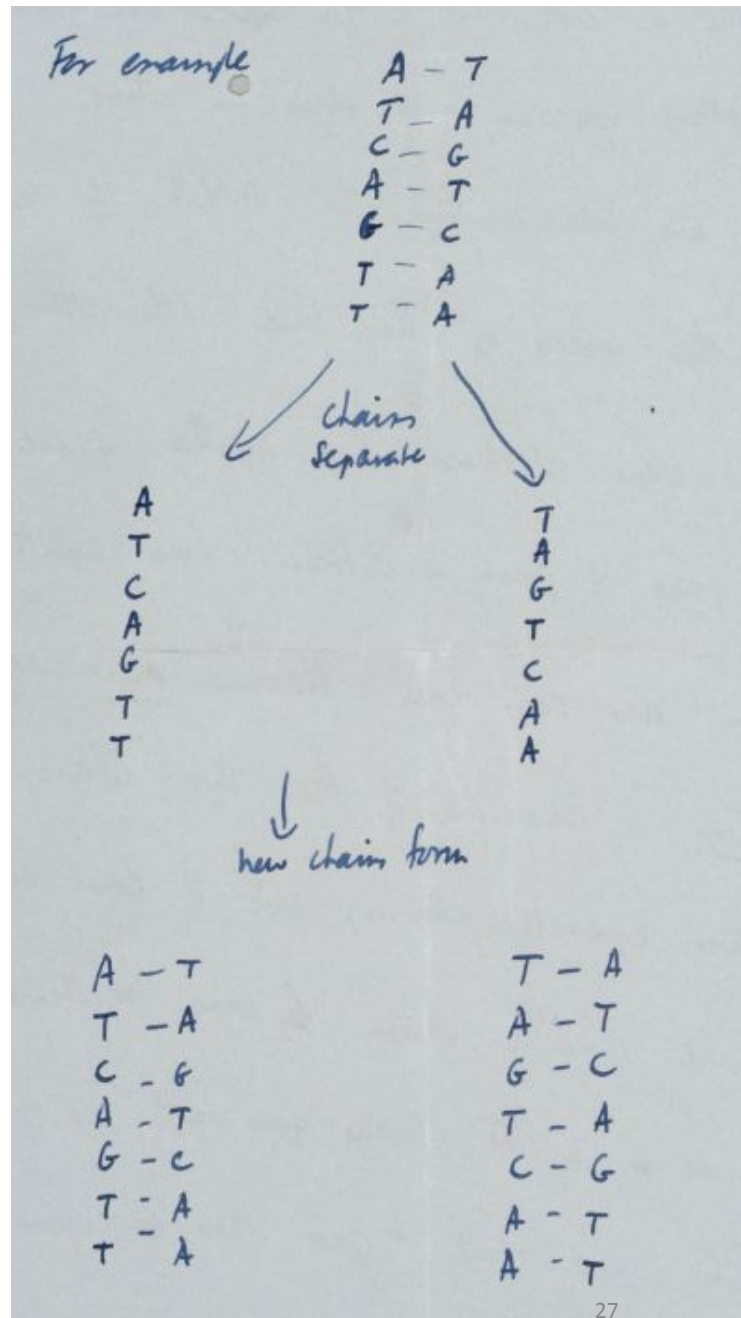 For example
A - T
T - A
C - G
A - T
G - C
T - A
T - A
chains
separate
A
T
C
A
G
T
T
T
A
G
T
C
A
A
new chains form
A - T
T - A
C - G
A - T
G - C
T - A
T - A
T - A
A - T
G - C
T - A
C - G
A - T
A - T
27